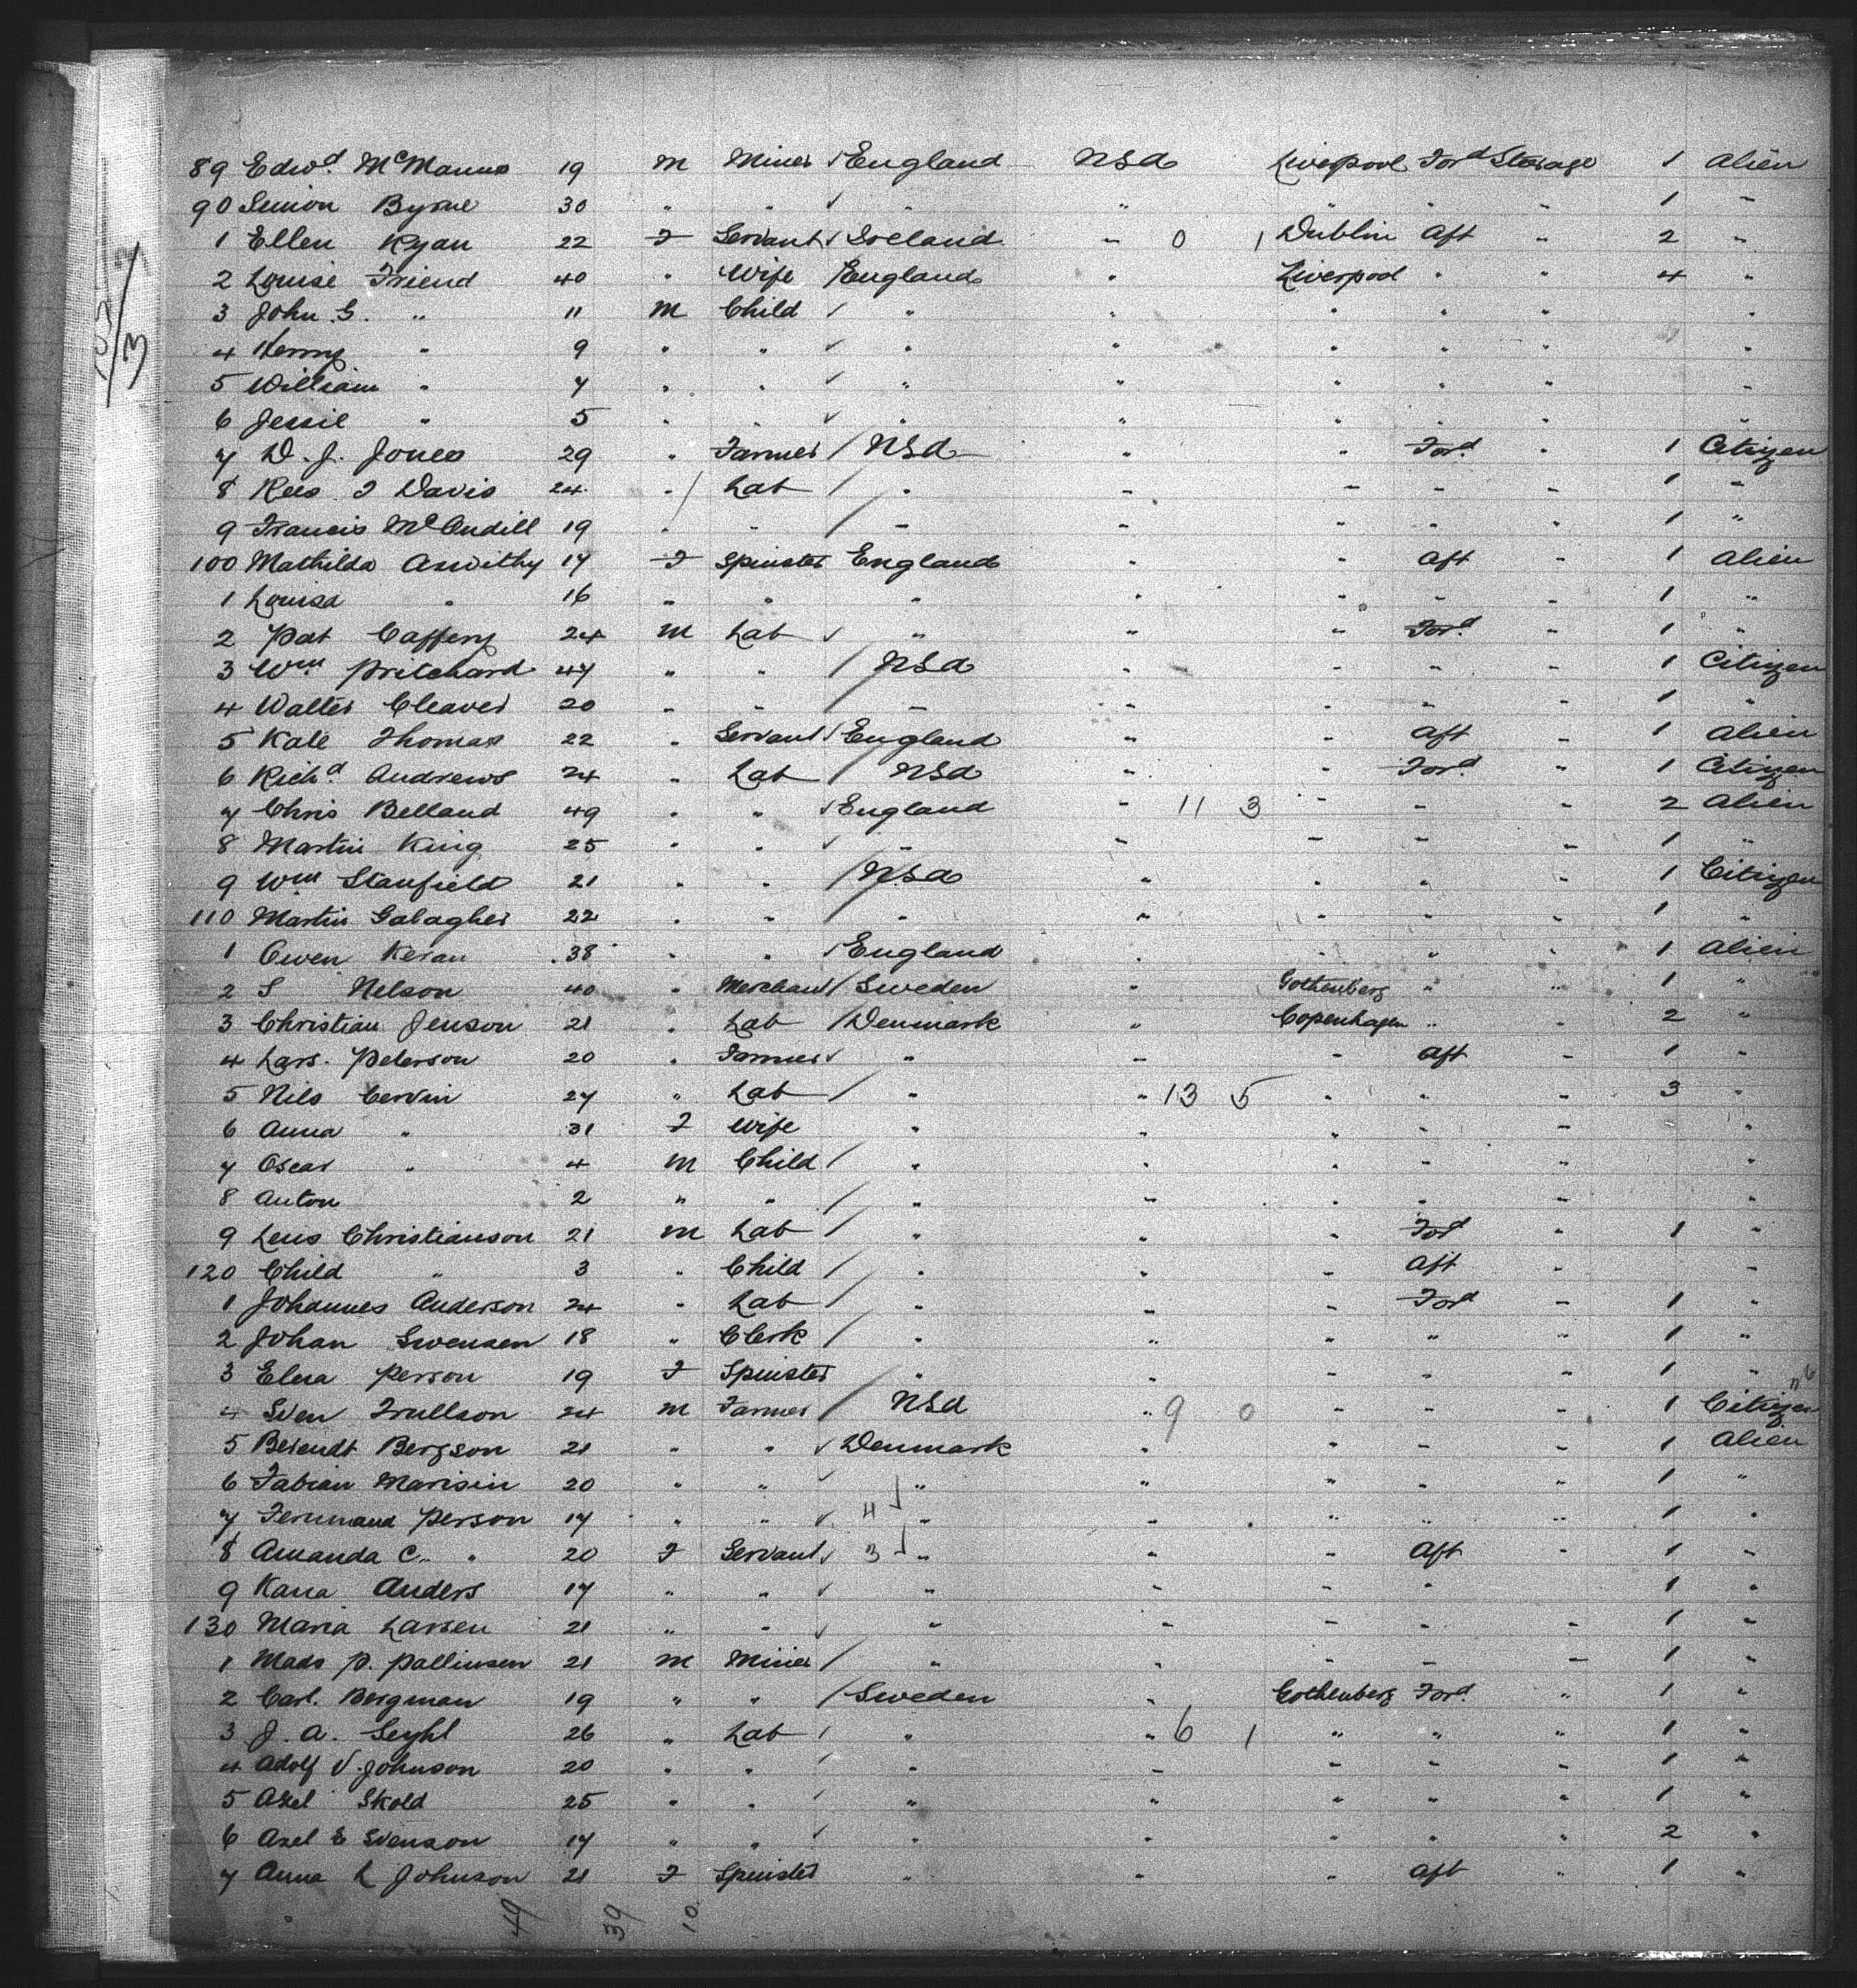 89 Edwd. McManus 19 M Miner England USA Liverpool Ford Steerage 1 Alien
90 Simon Byrne 30 " " " " " " " 1 "
1 Ellen Ryan 22 F Servant Ireland " 0 1 Dublin Aft " 2 "
2 Louise Friend 40 " Wife England " Liverpool " " 4 "
3 John G. " 11 M Child " " " " " "
4 Henry " 9 " " " " " " " "
5 William " 7 " " " " " " " "
6 Jessie " 5 " " " " " " " "
7 D. J. Jones 29 " Farmer USA " " Ford " 1 Citizen
8 Rees J Davis 24 " Lab " " " " " 1 "
9 Francis 19 " " " " " " " 1 "
100 Mathilda 17 F Spinster England " " Aft " 1 Alien
1 Louisa " 16 " " " " " " " 1 "
2 Pat Caffery 24 M Lab " " " Ford " 1 "
3 Wm Pritchard 47 " " USA " " " " 1 Citizen
4 Walter Cleaver 20 " " " " " " " 1 "
5 Kate Thomas 22 " Servant England " " Aft " 1 Alien
6 Richd Andrews 24 " Lab USA " " Ford " 1 Citizen
7 Chris Belland 49 " " England " 11 3 " " " 2 Alien
8 Martin King 25 " " " " " " " 1 "
9 Wm Stanfield 21 " " USA " " " " 1 Citizen
110 Martin Galagher 22 " " " " " " " 1 "
1 Owen Keran 38 " " England " " " " 1 Alien
2 S Nelson 40 " Merchant Sweden " Gothenberg " " 1 "
3 Christian Jenson 21 " Lab Denmark " Copenhagen " " 2 "
4 Lars. Peterson 20 " Farmer " " " Aft " 1 "
5 Nils Cervin 27 " Lab " " 13 5 " " " 3 "
6 Anna " 31 F Wife " " " " " "
7 Oscar " 4 M Child " " " " " "
8 Anton 2 " " " " " " " "
9 Lens Christianson 21 M Lab " " " Ford " 1 "
120 Child " 3 " Child " " " Aft " "
1 Johannes Anderson 24 " Lab " " " Ford " 1 "
2 Johan Swensen 18 " Clerk " " " " " 1 "
3 Elna Person 19 F Spinster " " " " " 1 "
4 Sven Trullson 24 M Farmer USA " 9 0 " " " 1 Citizen
5 Berendt Bergson 21 " " Denmark " " " " 1 Alien
6 Fabian Marisin 20 " " " " " " " 1 "
7 Fernmand Person 17 " " 4 " " " " " 1 "
8 Amanda C. " 20 F Servant 3 " " " Aft " 1 "
9 Kana Anders 17 " " " " " " 1 "
130 Maria Larsen 21 " " " " " " " 1 "
1 Mads P. Pallinsen 21 M Miner " " " " " 1 "
2 Carl. Bergman 19 " " Sweden " Gothenberg Ford " 1 "
3 J. A. Seyhl 26 " Lab " " 6 1 " " " 1 "
4 Adolf V. Johnson 20 " " " " " " " 1 "
5 Axel Skold 25 " " " " " " " 1 "
6 Axel E Svenson 17 " " " " " " " 2 "
7 Anna L Johnson 21 F Spinster " " " Aft " 1 "
49 39 10